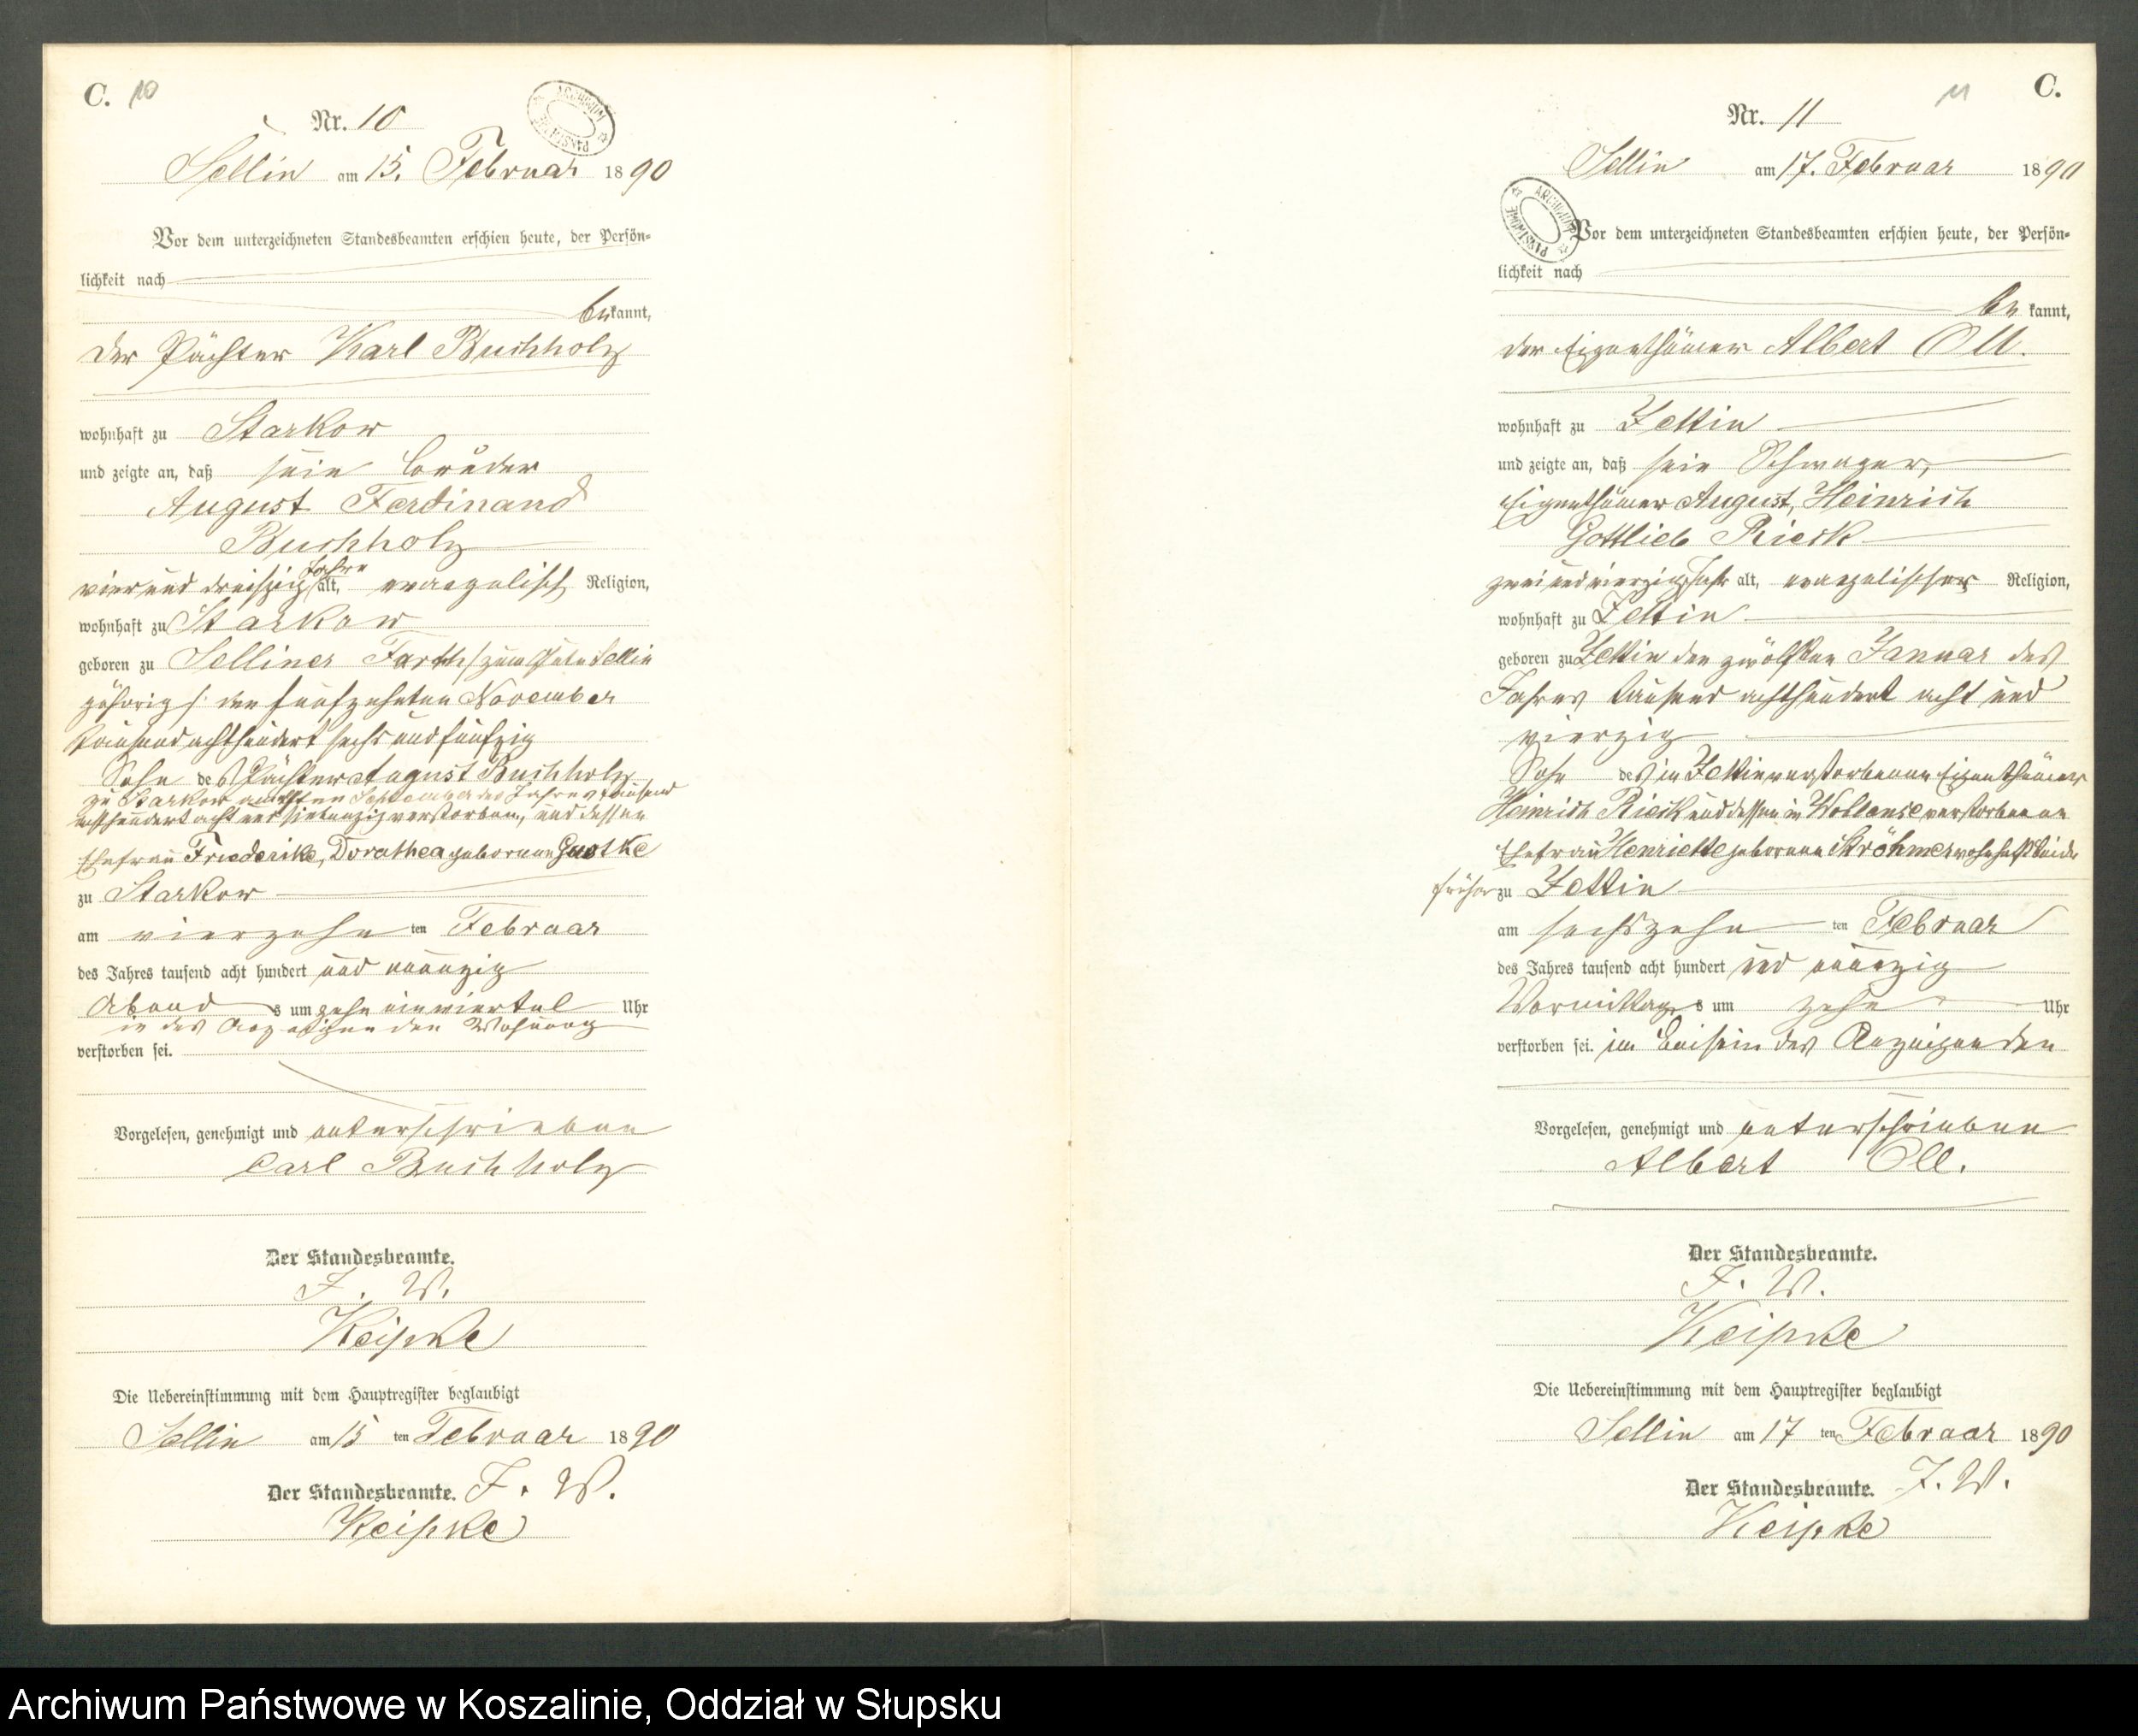 C. 10
Nr. 10
Sellin am 15. Februar 1890
Vor dem unterzeichneten Standesbeamten erschien heute, der Persön-
lichkeit nach
bekannt,
der Pächter Karl Buchholz
wohnhaft zu Starkow
und zeigte an, daß sein Bruder
August Ferdinand
Buchholz
Jahre
vier und dreißig alt, evangelisch Religion,
wohnhaft zu Starkow
geboren zu Selliner zum Gute Sellin
gehörig den fünfzehnten November
tausend achthundert sechs und fünfzig
Sohn des Pächter August Buchholz
zu Starkow September des Jahres tausend
achthundert acht und siebenzig verstorben, und dessen
Ehefrau Friederike, Dorathea geborenen Gustke
zu Starkow
am vierzehn ten Februar
des Jahres tausend acht hundert und neunzig
Abend s um zehn einviertel Uhr
in des Anzeigenden Wohnung
verstorben sei.
Vorgelesen, genehmigt und unterschrieben
Carl Buchholz
Der Standesbeamte.
J. W.
Keipke
Die Uebereinstimmung mit dem Hauptregister beglaubigt
Sellin am 15 ten Februar 1890
Der Standesbeamte. J. W.
Keipke
11 C.
Nr. 11
Sellin am 17. Februar 1890
ARCHIWUM PAŃSTWOWE
Vor dem unterzeichneten Standesbeamten erschien heute, der Persön-
lichkeit nach
be kannt,
der Eigenthümer Albert Oll.
wohnhaft zu Zettin
und zeigte an, daß sein Schwager,
Eigenthümer August, Heinrich
Gottlieb Rieck
zwei und vierzig Jahr alt, evangelischer Religion,
wohnhaft zu Zettin
geboren zu Zettin den zwölften Januar des
Jahres tausend achthundert acht und
vierzig
Sohn des in Zettin verstorbenen Eigenthümer
Heinrich Rieck und dessen in Wollense verstorbenen
Ehefrau Henriette geborenen Ströhmer wohnhaft beide
früher zu Zettin
am sechszehn ten Februar
des Jahres tausend acht hundert und neunzig
Vormittag s um zehn Uhr
verstorben sei. im Beisein des Anzeigenden
Vorgelesen, genehmigt und unterschrieben
Albert Oll.
Der Standesbeamte.
J. W.
Keipke
Die Uebereinstimmung mit dem Hauptregister beglaubigt
Sellin am 17 ten Februar 1890
Der Standesbeamte. J. W.
Keipke
Archiwum Państwowe w Koszalinie, Oddział w Słupsku